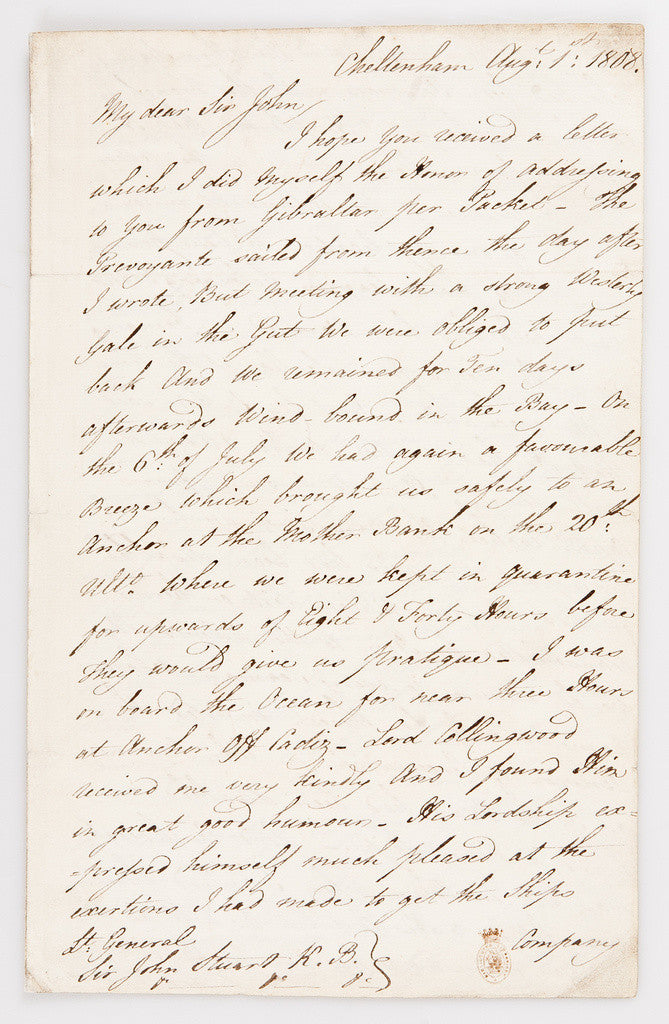 Cheltenham Augt. 1st. 1808.
My dear Sir John,
I hope You received a letter
which I did Myself the Honor of addressing
to You from Gibraltar per Packet – The
Prevoyante sailed from thence the day after
I wrote, But Meeting with a strong Westerly
Gale in the Gut We were obliged to put
back And We remained for Ten days
afterwards Wind-bound in the Bay – On
the 6th. of July We had again a favourable
Breeze which brought us safely to an
Anchor at the Mother Bank on the 20th.
Ulto. Where we were kept in quarantine
for upwards of Eight & Forty Hours before
They would give us pratique – I was
on board the Ocean for near three Hours
at Anchor Off Cadiz – Lord Collingwood
received me very kindly And I found Him
in great good humour – His Lordship ex=
=pressed himself much pleased at the
exertions I had made to get the Ships
Company
Lt. General
Sir John Stuart K.B.